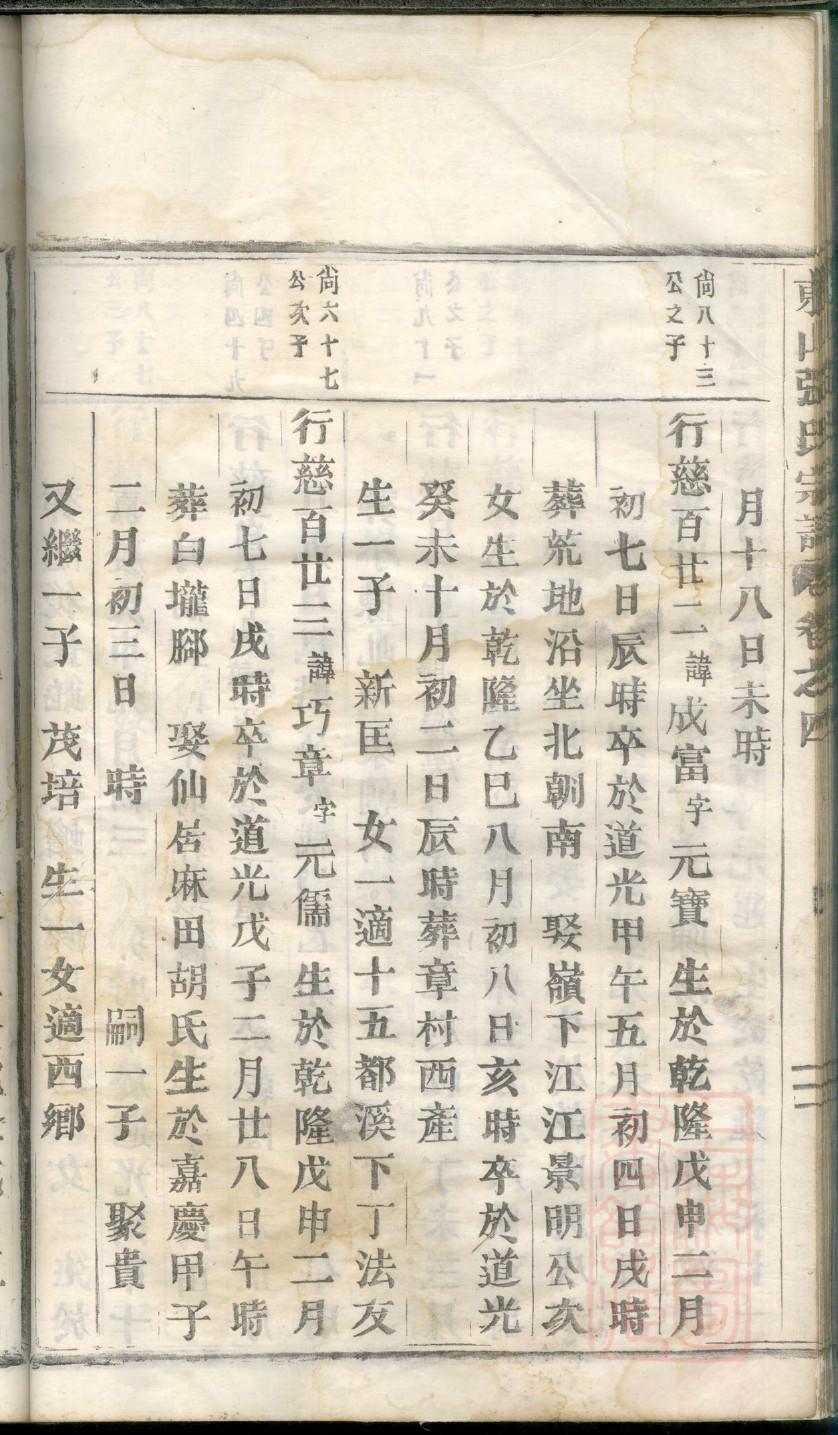 東山張氏宗譜卷之四
月十八日未時
尙八十三
公之子
行慈百廿二諱成富字元寶 生於乾隆戊申二月
初七日辰時卒於道光甲午五月初四日戌時
葬荒地沿坐北朝南 娶嶺下江江景明公次
女生於乾隆乙巳八月初八日亥時卒於道光
癸未十月初二日辰時葬章村西產
生一子 新匡 女一適十五都溪下丁法友
尙六十七
公次子
行慈百廿三諱巧章字元儒 生於乾隆戊申二月
初七日戌時卒於道光戊子二月廿八日午時
葬白壠腳 娶仙居麻田胡氏生於嘉慶甲子
二月初三日 時 嗣一子 聚貴
又繼一子 茂培 生一女適西鄉